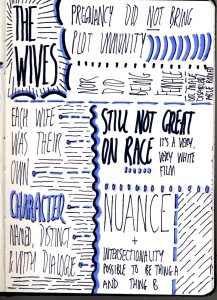 THE
WIVES
PREGNANCY DID NOT BRING
PLOT IMMUNITY
NOR DID BEING FEMALE
OR
DISABLED
EACH WIFE
WAS THEIR
OWN
CHARACTER
NAMED, DISTINCT
& WITH DIALOGUE
STILL NOT GREAT
ON RACE
IT'S A VERY,
VERY WHITE
FILM
NUANCE
+
INTERSECTIONALITY
POSSIBLE TO BE THING A
AND THING B